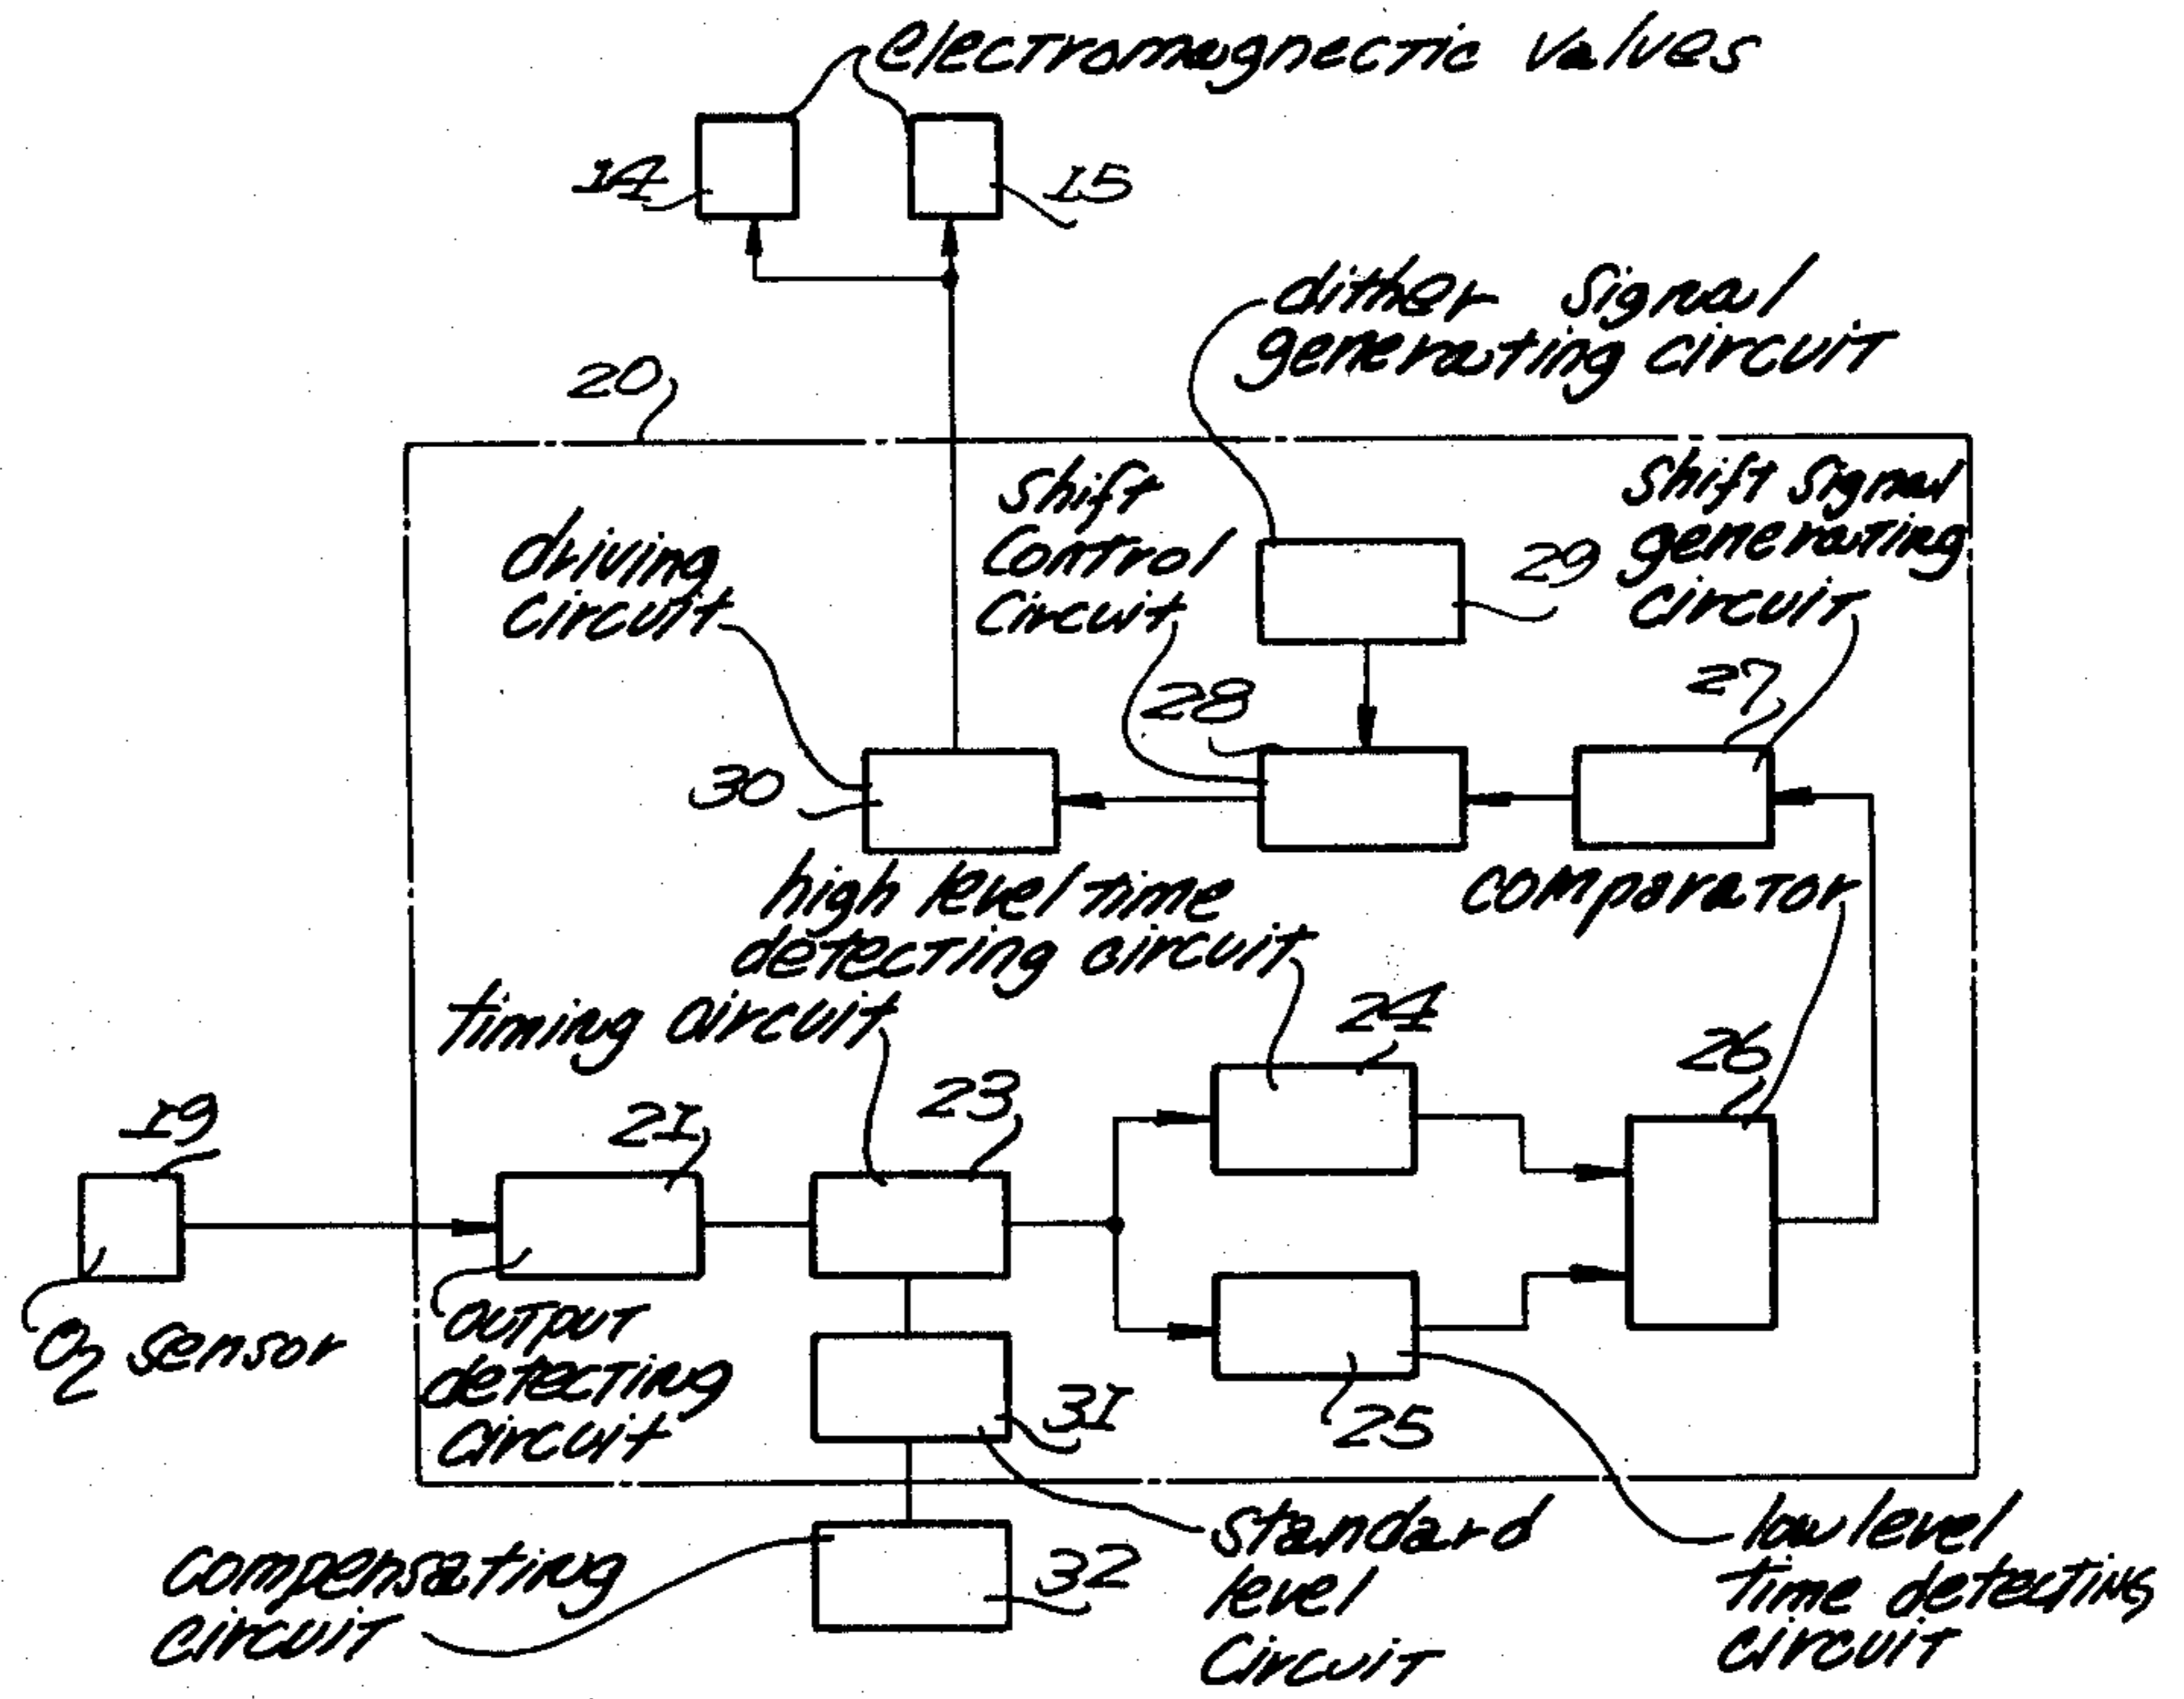 electromagnectic valves
14
15
dither signal
generating circuit
20
shift
control
circuit
shift signal
generating
circuit
driving
circuit
29
27
28
30
high level time
detecting circuit
comparator
timing circuit
24
26
23
21
19
O2 sensor
output
detecting
circuit
31
25
compensating
circuit
32
standard
level
circuit
low level
time detecting
circuit